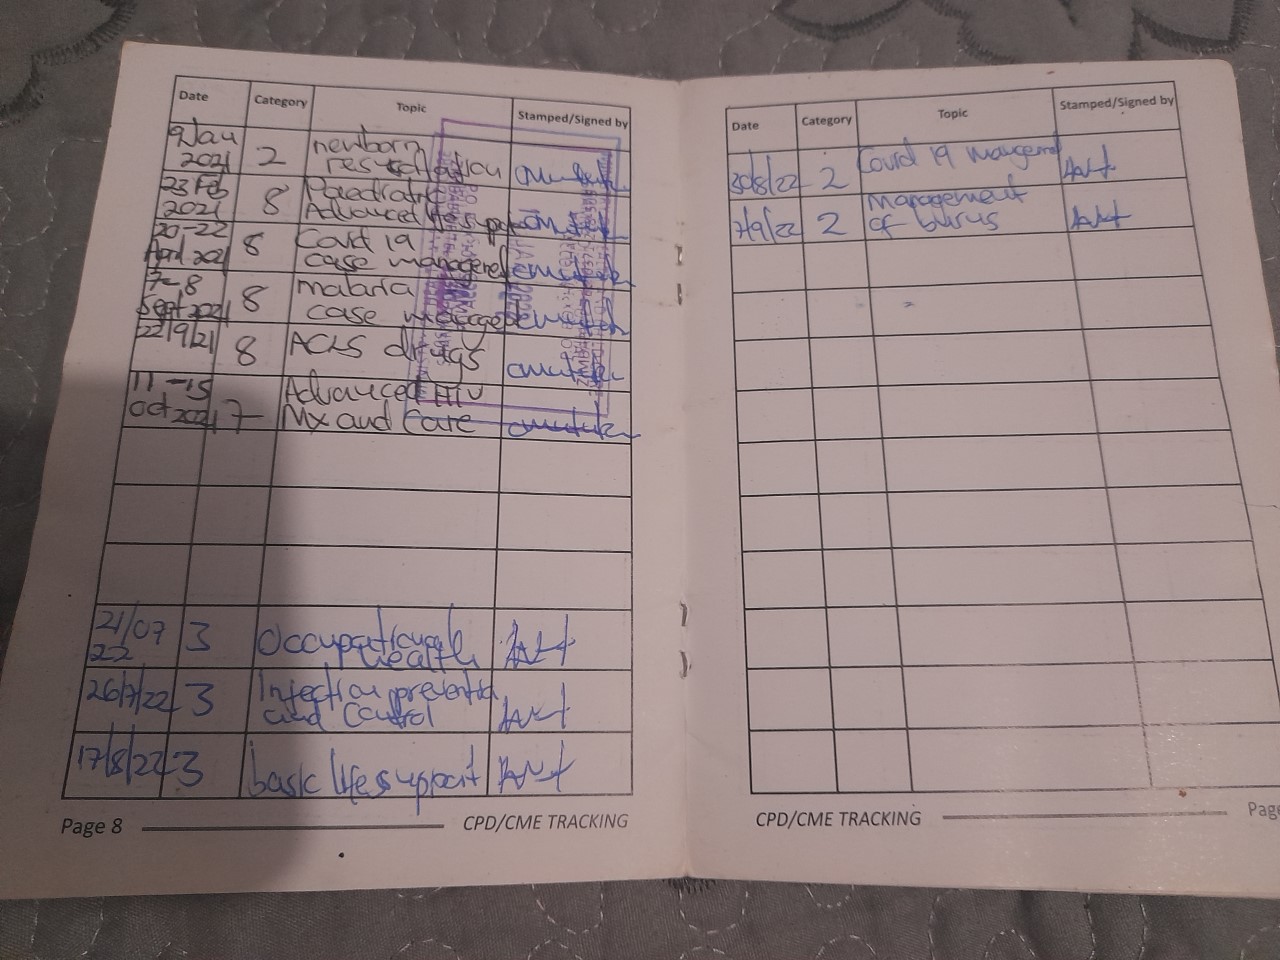 Date Category Topic Stamped/Signed by
9 Jan 2021 2 newborn resuscitation
23 Feb 2021 8 Paediatric Advanced life support
20-22 April 2021 8 Covid 19 case management
7-8 Sept 2021 8 malaria case management
22/9/21 8 ACLS drugs
11-15 Oct 2021 7 Advanced HIV Mx and Care
21/07 22 3 Occupational health
26/7/22 3 Infection prevention and Control
17/8/22 3 basic life support
Page 8 CPD/CME TRACKING
Date Category Topic Stamped/Signed by
30/8/22 2 Covid 19
7/9/22 2 Management of burns
CPD/CME TRACKING Page